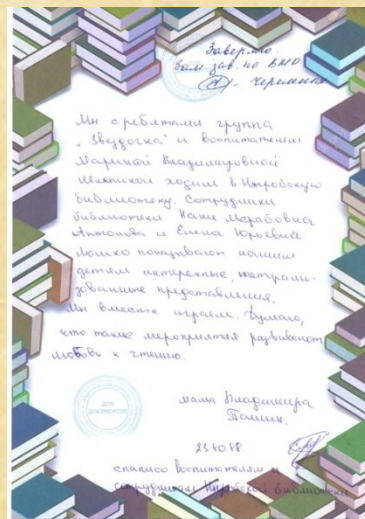 Заверяю.
Зам. зав. по ВМО
Черемных
Мы с ребятами группа
"Звездочка" и воспитателем
Мариной Владимировной
ходим в Ныробскую
библиотеку. Сотрудники
библиотеки Нани Мерабовна
Антонова и Елена Юрьевна
показывают нашим
детям интересные, театрали-
зованные представления.
Мы вместе играем. Думаю,
что такие мероприятия развивают
любовь к чтению.
ДЛЯ
ДОКУМЕНТОВ
мама Владимира
23.10.18
спасибо воспитателям и
сотрудникам Ныробской библиотеки